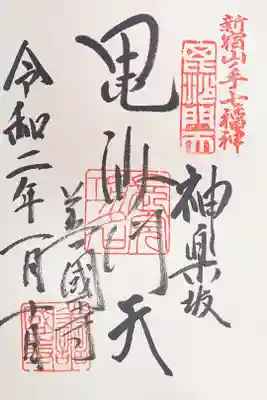 新宿山ノ手七福神
神楽坂
毘沙門天
善國寺
令和二年一月十日